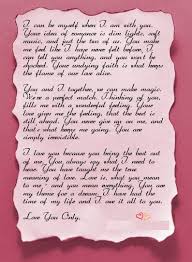 I can be myself when I am with you.
Your idea of romance is dim lights, soft
music, and just the two of us. You make
me feel like I have never felt before, I
can tell you anything, and you won't be
shocked. Your undying faith is what keeps
the flame of our love alive.
You and I together, we can make magic.
We're a perfect match. Thinking of you,
fills me with a wonderful feeling. Your
love gives me the feeling, that the best
is still ahead. You never give up on me, and
that's what keeps me going. You are
simply irresistible.
I love you because you bring the best out
of me. You always say what I need to
hear. You have taught me the true
meaning of love. Love is, what you mean
to me - and you mean everything. You are
my theme for a dream. I have had the time
of my life and I owe it all to you.
Love You Only.